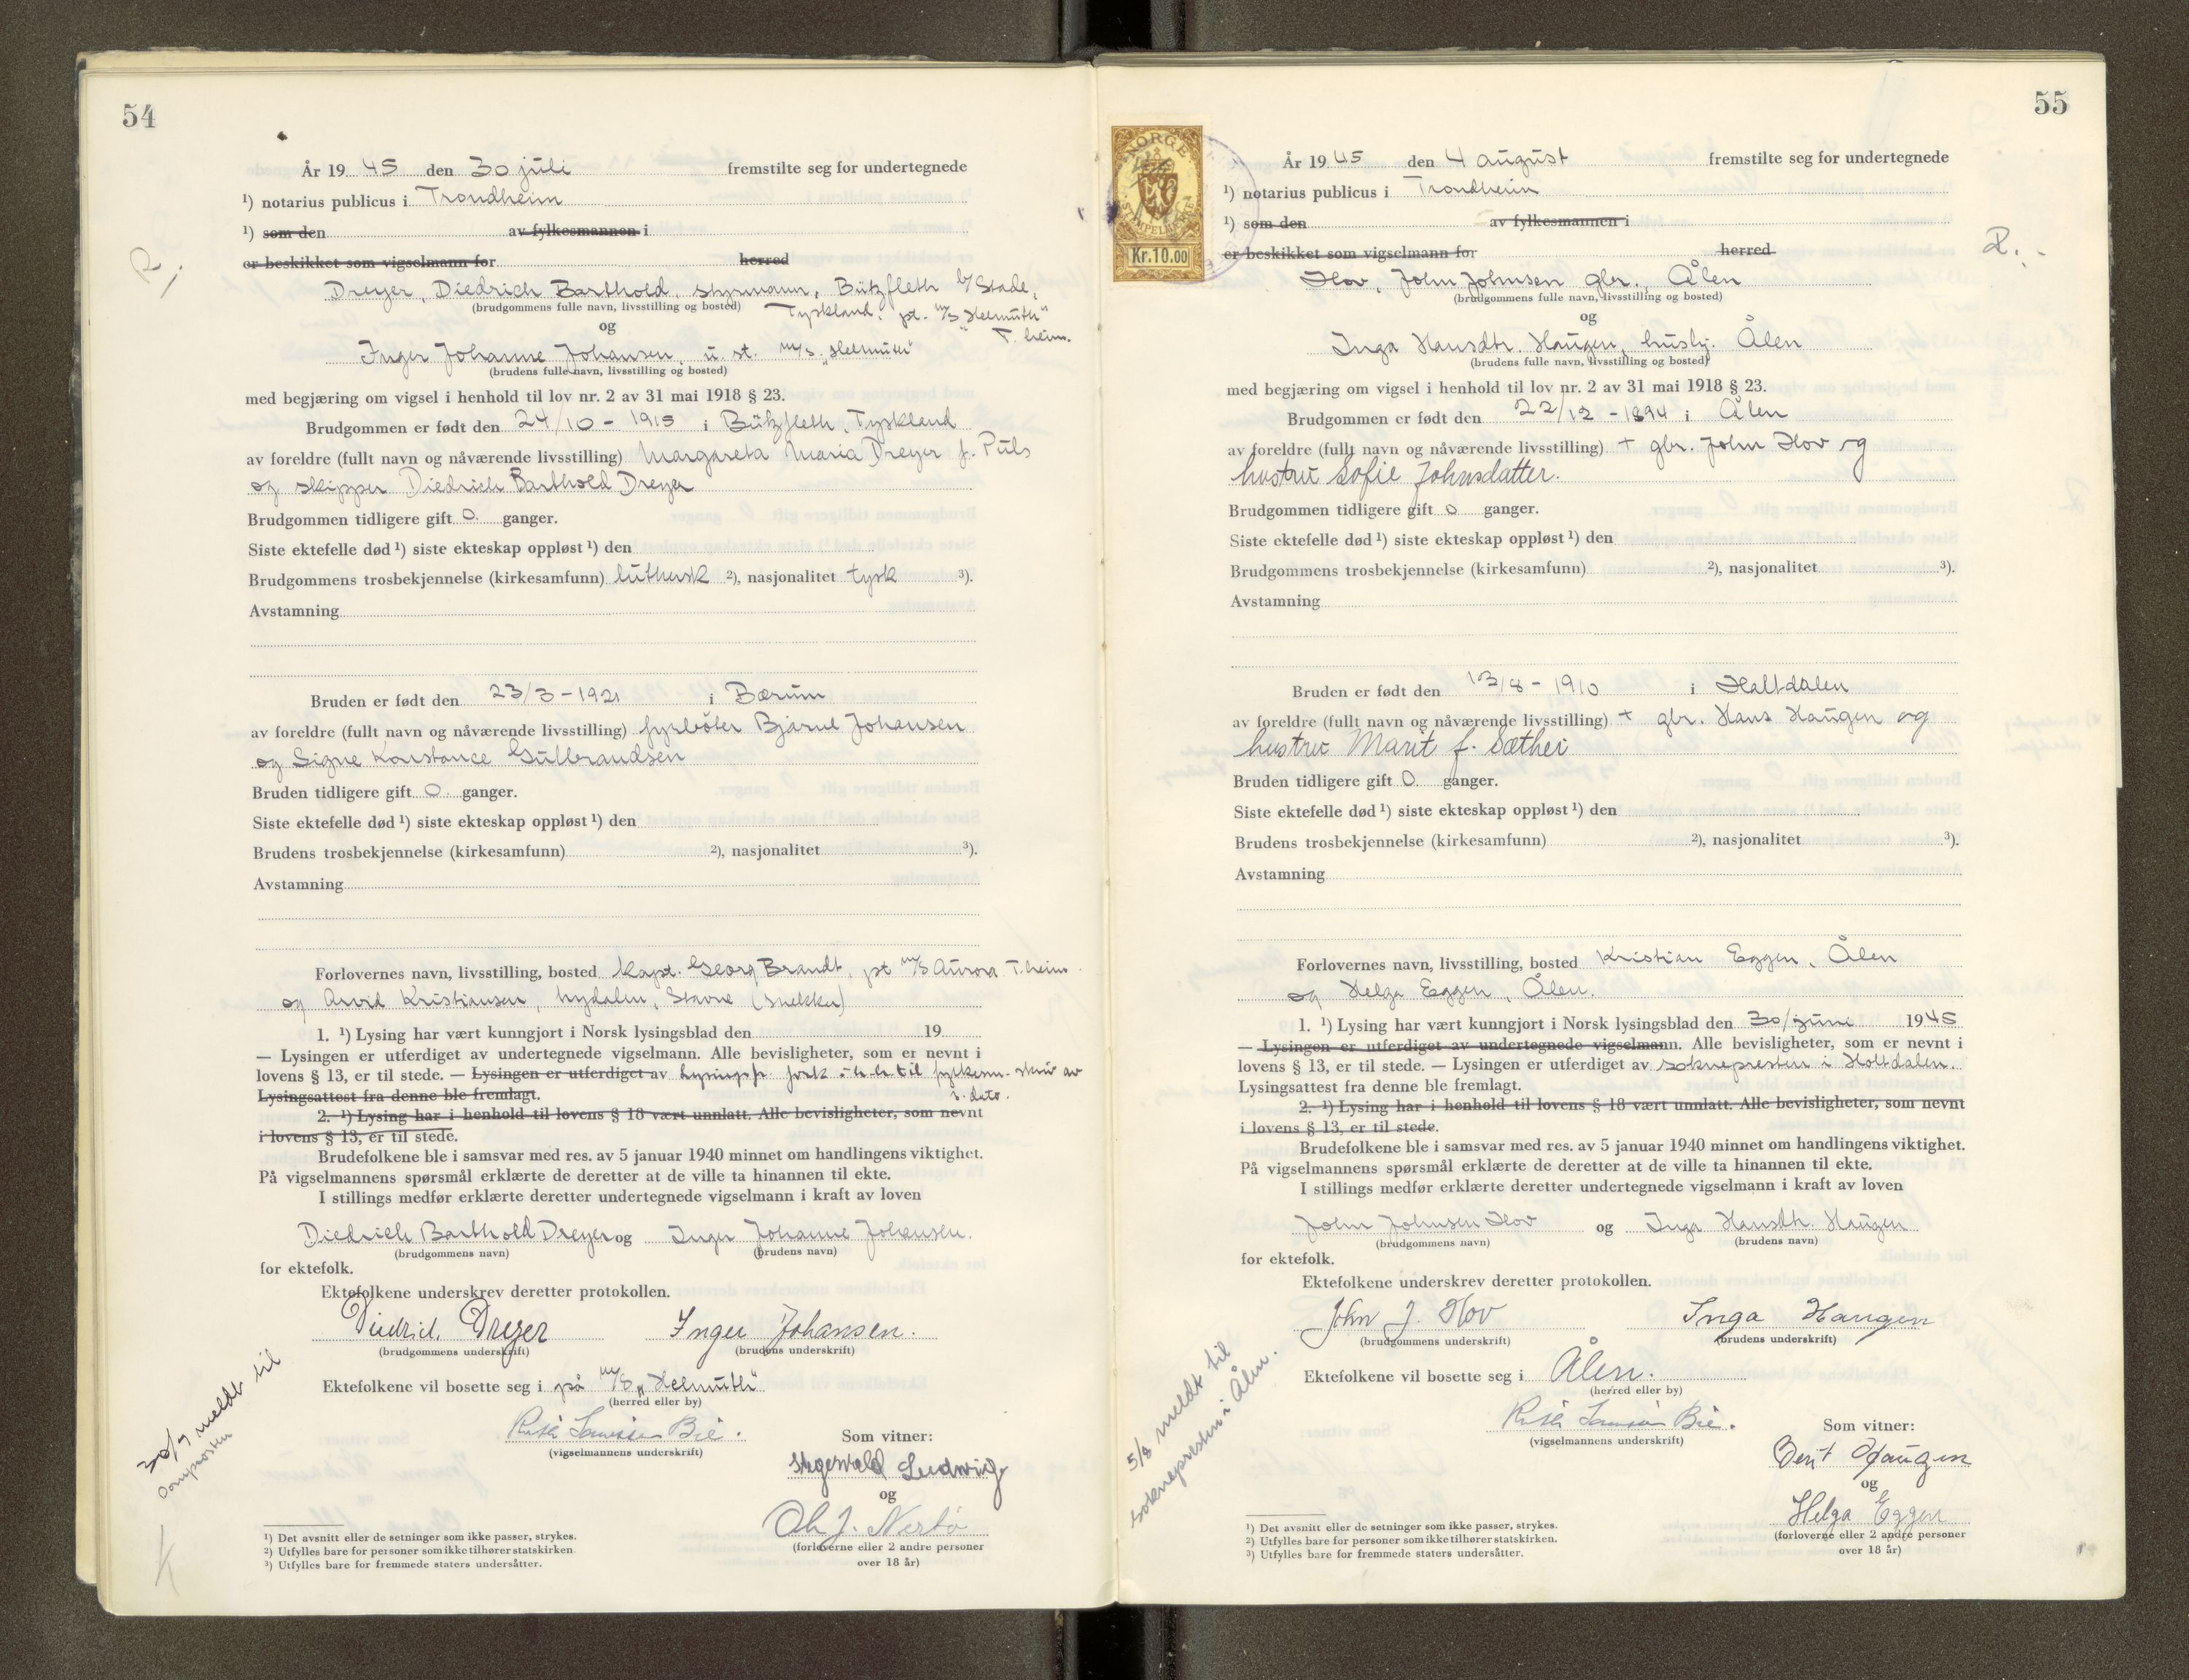 54
År 1945 den 30 juli fremstilte seg for undertegnede
¹) notarius publicus i Trondheim
¹) som den av fylkesmannen i
er beskikket som vigselmann for herred
R
Dreyer, Diedrich Barthold, styrmann, Bützfleth b/Stade,
(brudgommens fulle navn, livsstilling og bosted) Tyskland, pt. m/s "Helmuth"
og T.heim.
Inger Johanne Johansen, u. st. m/s. "Helmuth"
(brudens fulle navn, livsstilling og bosted)
med begjæring om vigsel i henhold til lov nr. 2 av 31 mai 1918 § 23.
Brudgommen er født den 24/10 - 1915 i Bützfleth, Tyskland
av foreldre (fullt navn og nåværende livsstilling) Margareta Maria Dreyer f. Puls
og skipper Diedrich Barthold Dreyer
Brudgommen tidligere gift 0 ganger.
Siste ektefelle død ¹) siste ekteskap oppløst ¹) den
Brudgommens trosbekjennelse (kirkesamfunn) luthersk ²), nasjonalitet tysk ³).
Avstamning
Bruden er født den 23/3 - 1921 i Bærum
av foreldre (fullt navn og nåværende livsstilling) fyrbøter Bjarne Johansen
og Signe Konstance Gulbrandsen
Bruden tidligere gift 0 ganger.
Siste ektefelle død ¹) siste ekteskap oppløst ¹) den
Brudens trosbekjennelse (kirkesamfunn) ²), nasjonalitet ³).
Avstamning
Forlovernes navn, livsstilling, bosted Kapt. Georg Brandt, pt m/s Aurora T.heim.
og Arvid Kristiansen, Nydalen, Stavne (snekker)
1. ¹) Lysing har vært kunngjort i Norsk lysingsblad den 19
— Lysingen er utferdiget av undertegnede vigselmann. Alle bevisligheter, som er nevnt i
lovens § 13, er til stede. — Lysingen er utferdiget av til fylkesm. skriv av
Lysingsattest fra denne ble fremlagt. dato.
2. ¹) Lysing har i henhold til lovens § 18 vært unnlatt. Alle bevisligheter, som nevnt
i lovens § 13, er til stede.
Brudefolkene ble i samsvar med res. av 5 januar 1940 minnet om handlingens viktighet.
På vigselmannens spørsmål erklærte de deretter at de ville ta hinannen til ekte.
I stillings medfør erklærte deretter undertegnede vigselmann i kraft av loven
Diedrich Barthold Dreyer og Inger Johanne Johansen.
(brudgommens navn) (brudens navn)
for ektefolk.
Ektefolkene underskrev deretter protokollen.
Diedrich Dreyer Inger Johansen.
(brudgommens underskrift) (brudens underskrift)
Ektefolkene vil bosette seg i på m/s "Helmuth"
(herred eller by)
Bie. Som vitner:
(vigselmannens underskrift)
Stegewald Ludwig
og
Ole J. Nerbø
(forloverne eller 2 andre personer
over 18 år)
30/7 meldt til
Domprosten
K
¹) Det avsnitt eller de setninger som ikke passer, strykes.
²) Utfylles bare for personer som ikke tilhører statskirken.
³) Utfylles bare for fremmede staters undersåtter.
55
NORGE
STEMPELMERKE
Kr.10.00
År 1945 den 4 august fremstilte seg for undertegnede
¹) notarius publicus i Trondheim
¹) som den av fylkesmannen i
er beskikket som vigselmann for herred
R.
Hov, John Johnsen gbr. Ålen
(brudgommens fulle navn, livsstilling og bosted)
og
Inga Hansdtr. Haugen, hushj. Ålen
(brudens fulle navn, livsstilling og bosted)
med begjæring om vigsel i henhold til lov nr. 2 av 31 mai 1918 § 23.
Brudgommen er født den 22/12 - 1894 i Ålen
av foreldre (fullt navn og nåværende livsstilling) + gbr. John Hov og
hustru Sofie Johnsdatter.
Brudgommen tidligere gift 0 ganger.
Siste ektefelle død ¹) siste ekteskap oppløst ¹) den
Brudgommens trosbekjennelse (kirkesamfunn) ²), nasjonalitet ³).
Avstamning
Bruden er født den 13/8 - 1910 i Haltdalen
av foreldre (fullt navn og nåværende livsstilling) + gbr. Hans Haugen og
hustru Marit f. Sæther
Bruden tidligere gift 0 ganger.
Siste ektefelle død ¹) siste ekteskap oppløst ¹) den
Brudens trosbekjennelse (kirkesamfunn) ²), nasjonalitet ³).
Avstamning
Forlovernes navn, livsstilling, bosted Kristian Eggen, Ålen
og Helga Eggen, Ålen.
1. ¹) Lysing har vært kunngjort i Norsk lysingsblad den 30/juni 1945
— Lysingen er utferdiget av undertegnede vigselmann. Alle bevisligheter, som er nevnt i
lovens § 13, er til stede. — Lysingen er utferdiget av soknepresten i Holtdalen.
Lysingsattest fra denne ble fremlagt.
2. ¹) Lysing har i henhold til lovens § 18 vært unnlatt. Alle bevisligheter, som nevnt
i lovens § 13, er til stede.
Brudefolkene ble i samsvar med res. av 5 januar 1940 minnet om handlingens viktighet.
På vigselmannens spørsmål erklærte de deretter at de ville ta hinannen til ekte.
I stillings medfør erklærte deretter undertegnede vigselmann i kraft av loven
John Johnsen Hov og Inga Hansdtr. Haugen
(brudgommens navn) (brudens navn)
for ektefolk.
Ektefolkene underskrev deretter protokollen.
John J. Hov Inga Haugen
(brudgommens underskrift) (brudens underskrift)
Ektefolkene vil bosette seg i Ålen.
(herred eller by)
Bie. Som vitner:
(vigselmannens underskrift)
Berit Haugen
og
Helga Eggen
(forloverne eller 2 andre personer
over 18 år)
5/8 meldt til
soknepresten i Ålen.
¹) Det avsnitt eller de setninger som ikke passer, strykes.
²) Utfylles bare for personer som ikke tilhører statskirken.
³) Utfylles bare for fremmede staters undersåtter.